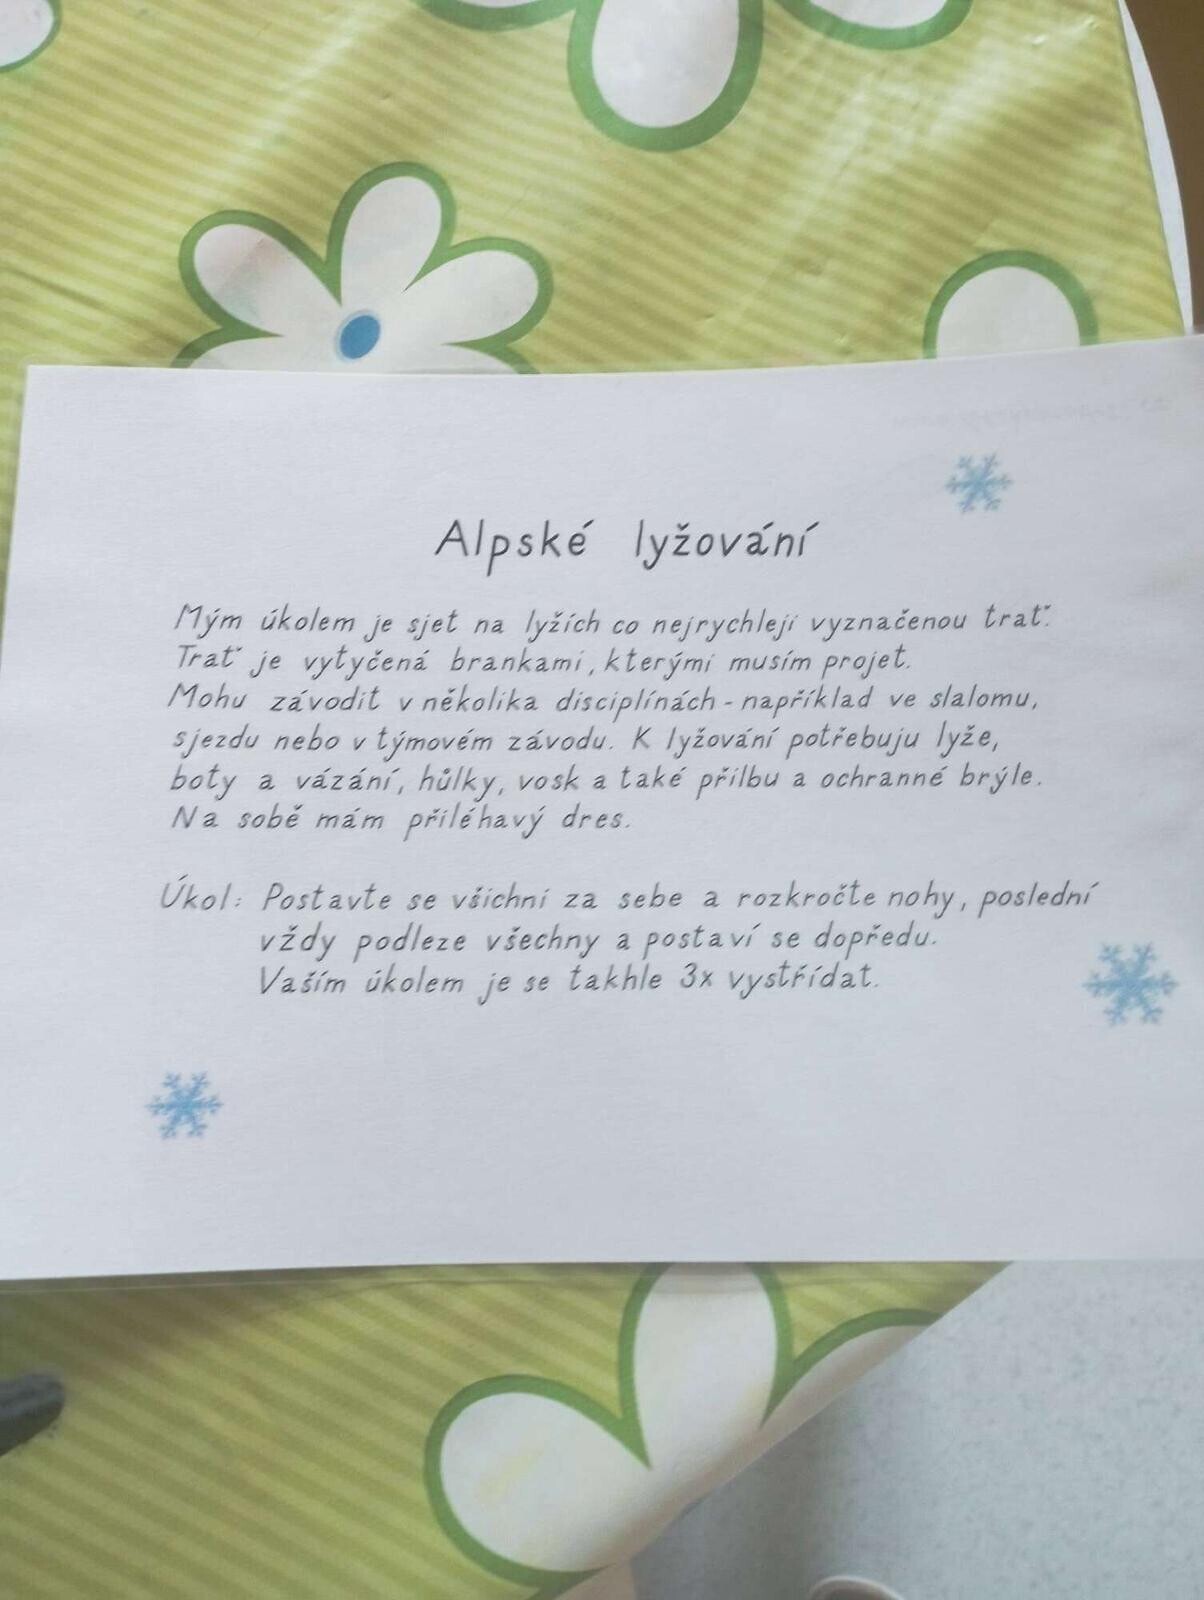 Alpské lyžování
Mým úkolem je sjet na lyžích co nejrychleji vyznačenou trať.
Trať je vytyčená brankami, kterými musím projet.
Mohu závodit v několika disciplínách - například ve slalomu,
sjezdu nebo v týmovém závodu. K lyžování potřebuju lyže,
boty a vázání, hůlky, vosk a také přilbu a ochranné brýle.
Na sobě mám přiléhavý dres.
Úkol: Postavte se všichni za sebe a rozkročte nohy, poslední
vždy podleze všechny a postaví se dopředu.
Vaším úkolem je se takhle 3x vystřídat.